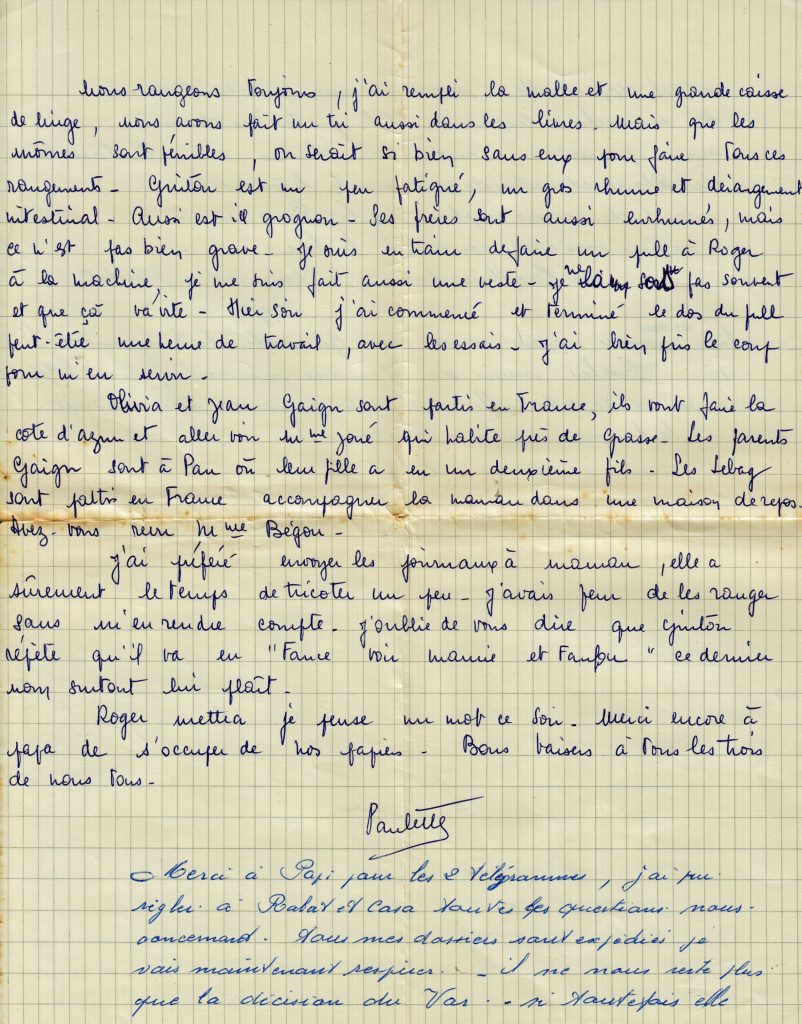 Nous rangeons toujours, j'ai rempli la malle et une grande caisse
de linge, nous avons fait un tri aussi dans les livres - Mais que les
mômes sont pénibles, on serait si bien sans eux pour faire tous ces
rangements - Guitou est un peu fatigué, un gros rhume et dérangement
intestinal - Aussi est il grognon - Ses frères sont aussi enrhumés, mais
ce n'est pas bien grave - Je suis en train de faire un pull à Roger
à la machine, je me suis fait aussi une veste - Je ne pas souvent
et que çà va vite - Hier soir j'ai commencé et terminé le dos du pull
peut-être une heure de travail, avec les essais - J'ai bien pris le coup
pour m'en servir -
Olivia et Jean Gaign sont partis en France, ils vont faire la
cote d'azur et aller voir Mme qui habite près de Grasse - Les parents
Gaign sont à Pau où leur fille a eu un deuxième fils - Les Sebag
sont partis en France accompagner la maman dans une maison de repos -
Avez-vous revu Mme Bégou -
J'ai préféré envoyer les journaux à maman, elle a
sûrement le temps de tricoter un peu - J'avais peur de les ranger
sans m'en rendre compte - J'oublie de vous dire que Guitou
répète qu'il va en "Fance voir mamie et Fanfou" ce dernier
nom surtout lui plaît -
Roger mettra je pense un mot ce soir - Merci encore à
papa de s'occuper de nos papiers - Bons baisers à tous les trois
de nous tous -
Paulette
Merci à Papi pour les 2 télégrammes, j'ai pu
régler à Rabat et Casa toutes les questions nous
concernant - tous mes dossiers sont expédiés je
vais maintenant respirer - il ne nous reste plus
que la décision du Var - si toutefois elle